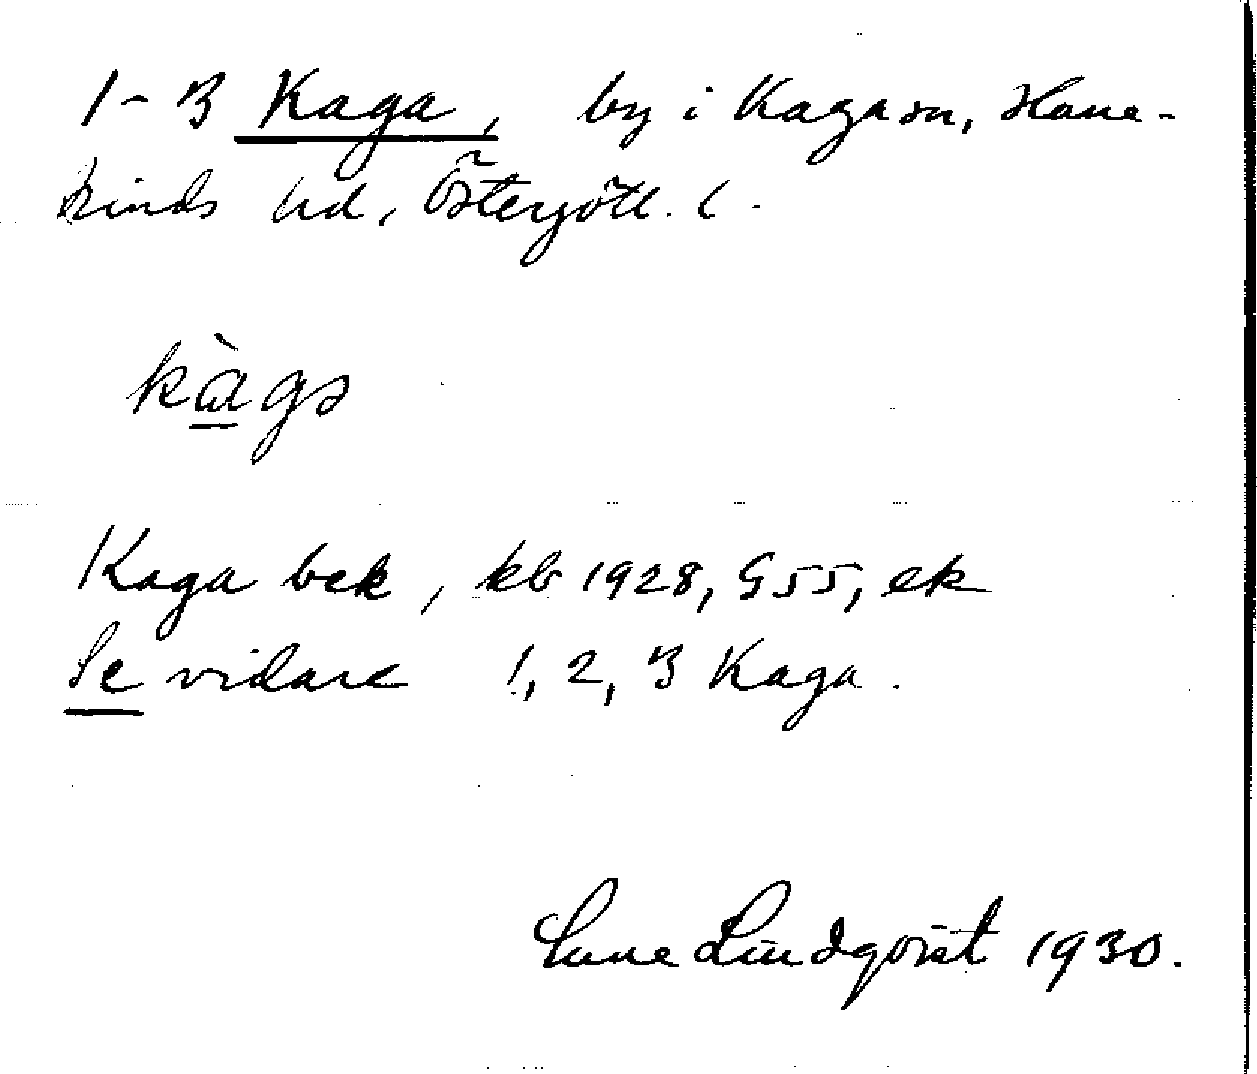 1-3 Kaga, by i Kaga sn, Hane-
kinds hd, Östergötl. l.
kàgə
Kaga bek, kb 1928, G55, ek
Se vidare 1, 2, 3 Kaga.
Sune Lindqvist 1930.